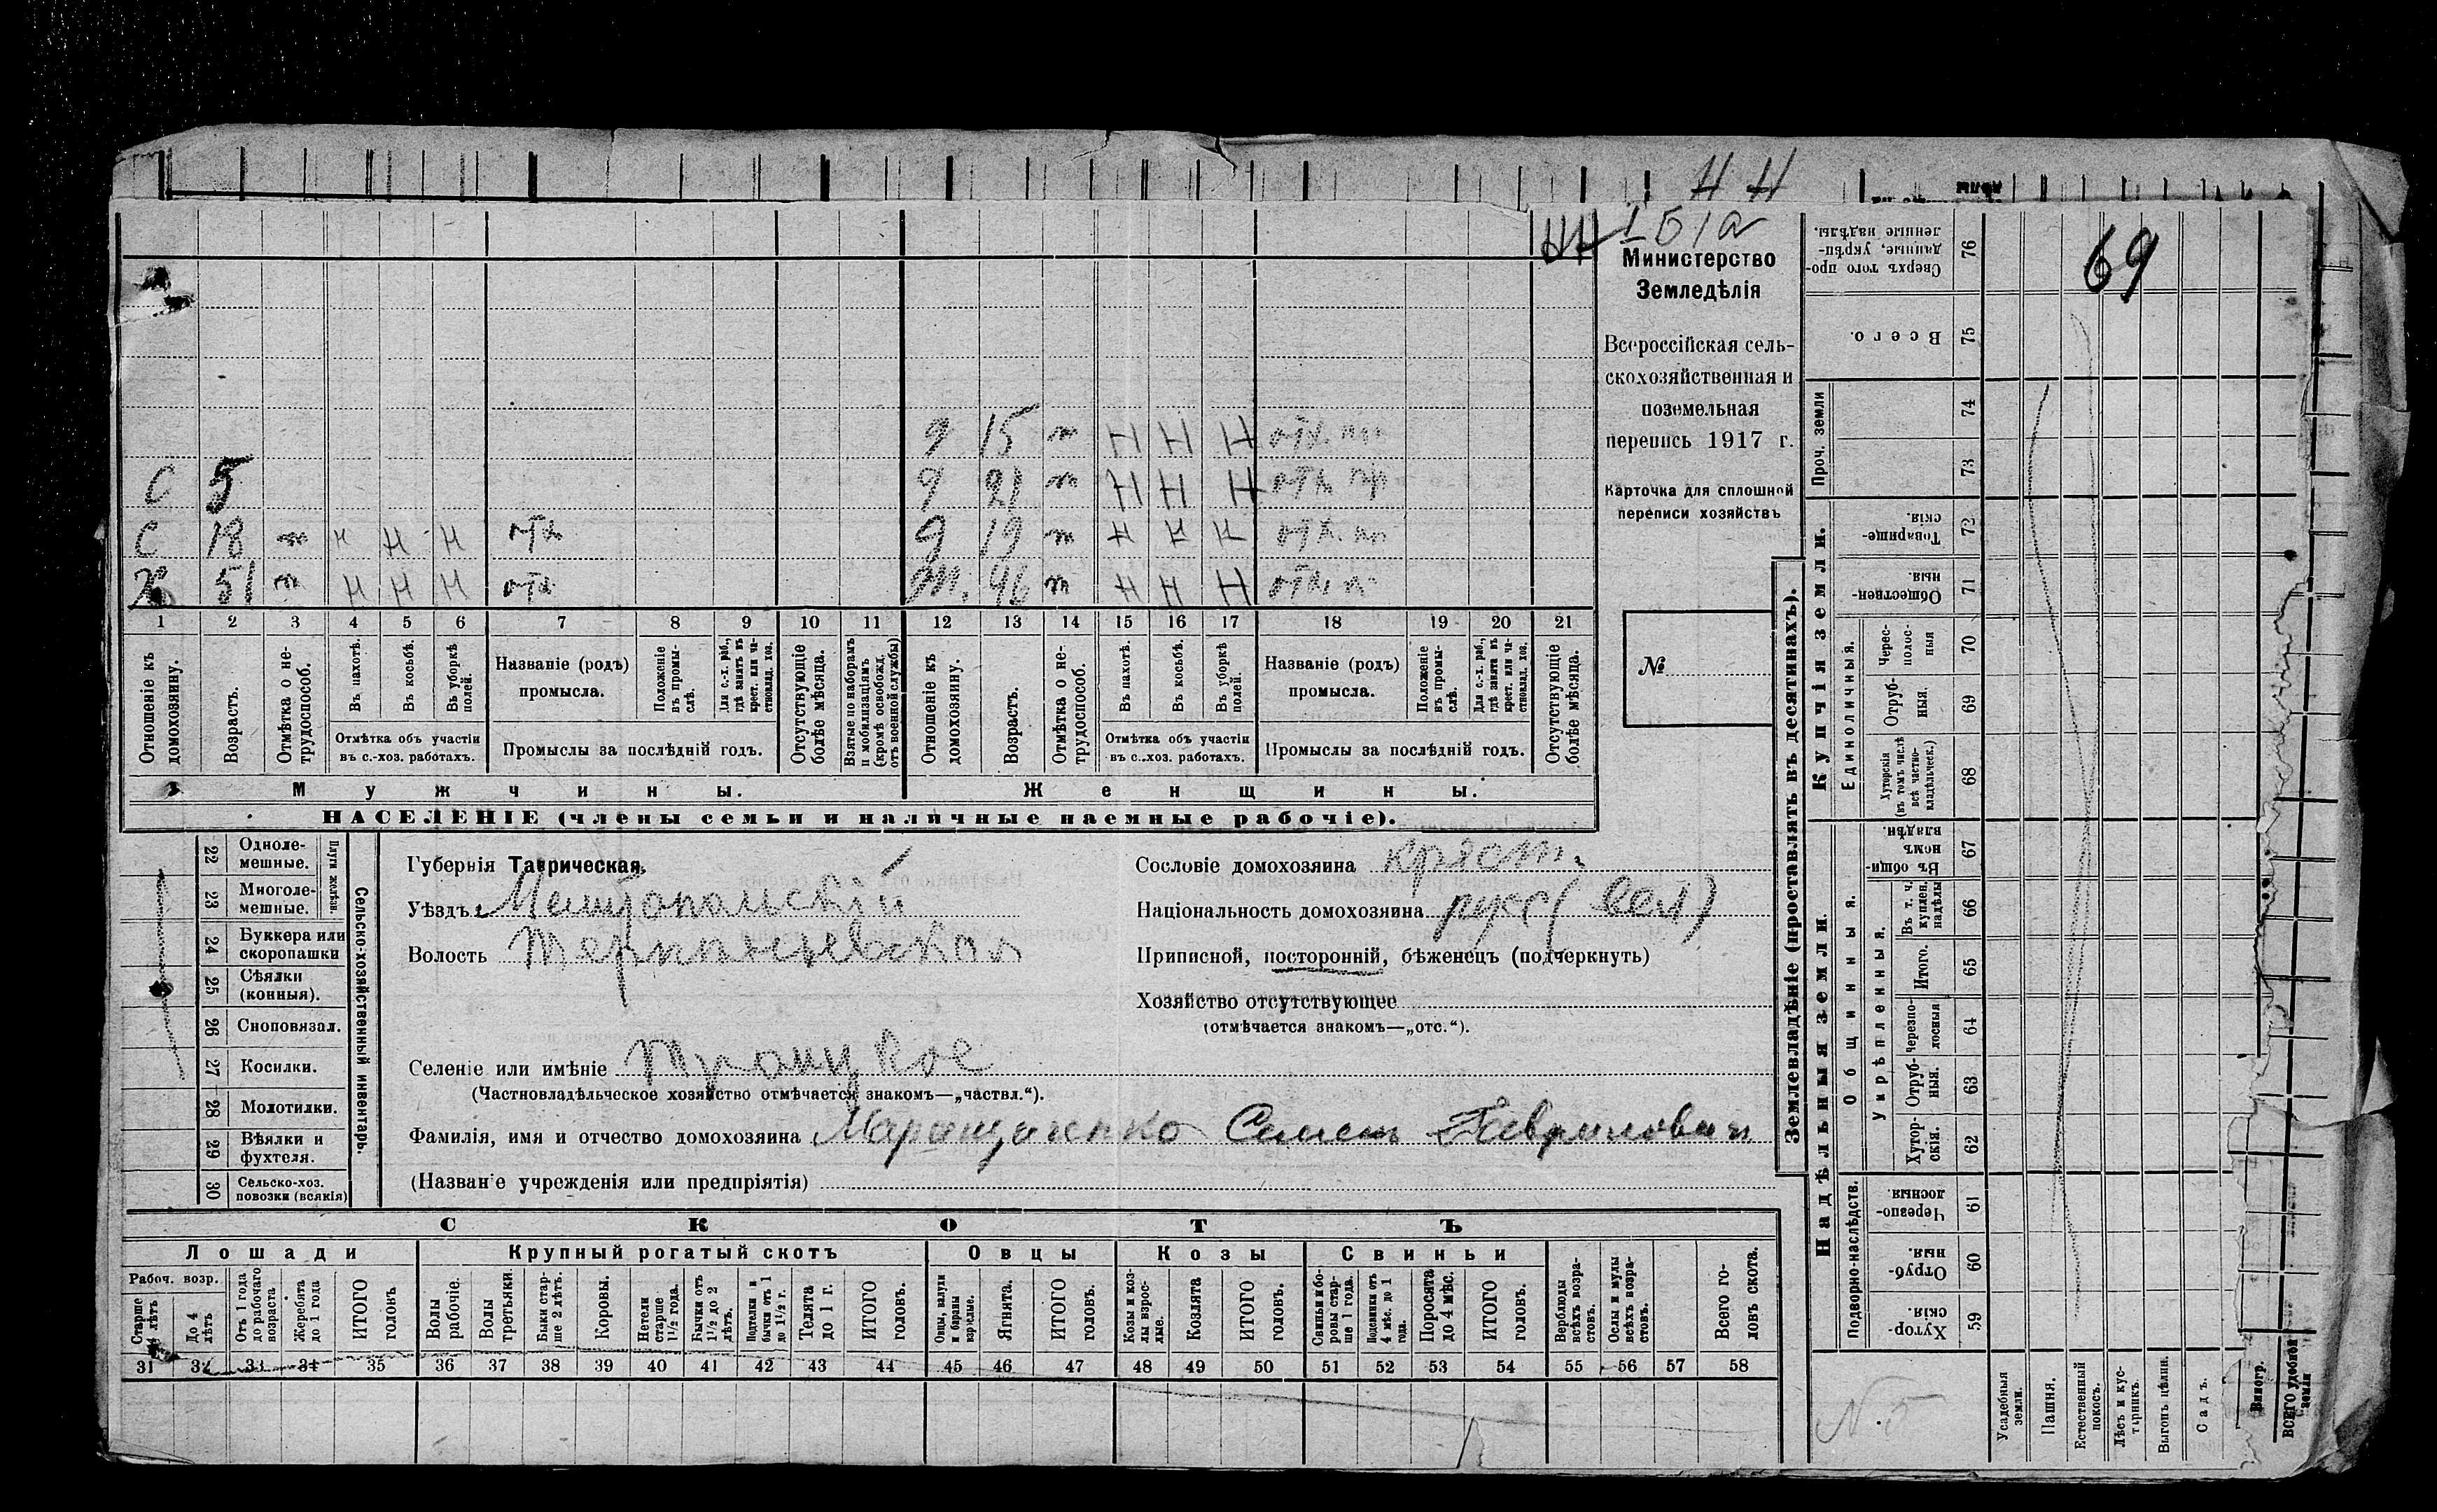 Н Н
НН 1 51а
69
Министерство
Земледѣлія
Всероссійская сель-
скохозяйственная и
поземельная
перепись 1917 г.
Карточка для сплошной
переписи хозяйствъ
№
д 15 т Н Н Н
С 5 д 21 т Н Н Н
С 18 т н н н отх д 19 т н н н
Х 51 т н н н отх 46 т н н Н
1 2 3 4 5 6 7 8 9 10 11 12 13 14 15 16 17 18 19 20 21
Отношеніе къ домохозяину.
Возрастъ.
Отмѣтка о не-трудоспособ.
Въ пахотѣ.
Въ косьбѣ.
Въ уборкѣ полей.
Отмѣтка объ участіи
въ с.-хоз. работахъ.
Названіе (родъ)
промысла.
Положеніе въ промы-слѣ.
Для с.-х. раб., гдѣ занятъ въ крест. или ча-стновлад. хоз.
Промыслы за послѣдній годъ.
Отсутствующіе болѣе мѣсяца.
Взятые по наборамъ и мобилизаціямъ (кромѣ освобожд. отъ военной службы)
Отношеніе къ домохозяину.
Возрастъ.
Отмѣтка о не-трудоспособ.
Въ пахотѣ.
Въ косьбѣ.
Въ уборкѣ полей.
Отмѣтка объ участіи
въ с.-хоз. работахъ.
Названіе (родъ)
промысла.
Положеніе въ промы-слѣ.
Для с.-х. раб., гдѣ занята въ крест. или ча-стновлад. хоз.
Промыслы за послѣдній годъ.
Отсутствующіе болѣе мѣсяца.
Мужчины. Женщины.
НАСЕЛЕНІЕ (члены семьи и наличные наемные рабочіе).
22 Одноле-мешные.
23 Многоле-мешные.
Плуги желѣзн.
24 Буккера или скоропашки
25 Сѣялки (конныя).
26 Сноповязал.
27 Косилки.
28 Молотилки.
29 Вѣялки и фухтеля.
30 Сельско-хоз. повозки (всякія)
Сельско-хозяйственный инвентарь.
Губернія Таврическая.
Уѣздъ Мелитопольскій
Волость
Селеніе или имѣніе Троицкое
(Частновладѣльческое хозяйство отмѣчается знакомъ—„частвл.“).
Фамилія, имя и отчество домохозяина Семенъ Гавриловичъ
(Названіе учрежденія или предпріятія)
Сословіе домохозяина крест.
Національность домохозяина русс
Приписной, посторонній, бѣженецъ (подчеркнуть)
Хозяйство отсутствующее
(отмѣчается знакомъ—„отс.“).
СКОТЪ
Лошади Крупный рогатый скотъ Овцы Козы Свиньи
Рабоч. возр.
Старше 4 лѣтъ
До 4 лѣтъ
Отъ 1 года до рабочаго возраста
Жеребята до 1 года
ИТОГО головъ
Волы рабочіе.
Волы третьяки.
Быки стар-ше 2 лѣтъ.
Коровы.
Нетели старше 1½ года.
Бычки отъ 1½ до 2 лѣтъ.
Подтелки и бычки отъ 1 до 1½ г.
Телята до 1 г.
ИТОГО головъ.
Овцы, валухи и бараны взрослые.
Ягнята.
ИТОГО головъ.
Козы и коз-лы взрос-лые.
Козлята
ИТОГО головъ.
Свиньи и бо-ровы стар-ше 1 года.
Подсвинки отъ 4 мѣс. до 1 года.
Поросята до 4 мѣс.
ИТОГО головъ.
Верблюды всѣхъ возра-стовъ.
Ослы и мулы всѣхъ возра-стовъ.
Всего го-ловъ скота.
31 32 33 34 35 36 37 38 39 40 41 42 43 44 45 46 47 48 49 50 51 52 53 54 55 56 57 58
Землевладѣніе (проставлять въ десятинахъ).
Надѣльныя земли.
Купчія земли.
Проч. земли
Подворно-наслѣдств.
Общинныя.
Укрѣпленныя.
Единоличный.
Сверхъ того про-данные, укрѣп-ленные надѣлы. 76
Всего. 75
74
73
Товарище-скія. 72
Обществен-ныя. 71
Черес-полос-ныя 70
Отруб-ныя. 69
Хуторскія (въ томъ числѣ всѣ частно-владѣльческ.) 68
Въ общи-номъ владѣн. 67
Въ т. ч. куплен. надѣлы 66
Итого. 65
Черезпо-лосныя 64
Отруб-ныя. 63
Хутор-скія. 62
Черезпо-лосныя. 61
Отруб-ныя. 60
Хутор-скія. 59
N. 5
Усадебныя земли.
Пашня.
Естественный покосъ.
Лѣсъ и кус-тарникъ.
Выгонъ цѣлин.
Садъ.
Виногр.
ВСЕГО удобной земли